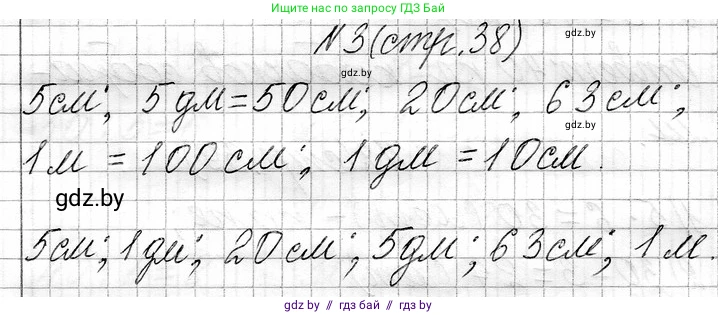 Ищите по запросу ГДЗ Бай
N3 (стр. 38)
gdz.by
gdz.by
5 см; 5 дм = 50 см; 20 см; 63 см;
gdz.by
1 м = 100 см; 1 дм = 10 см.
gdz.by
5 см; 1 дм; 20 см; 5 дм; 63 см; 1 м.
gdz.by // гдз бай // gdz.by